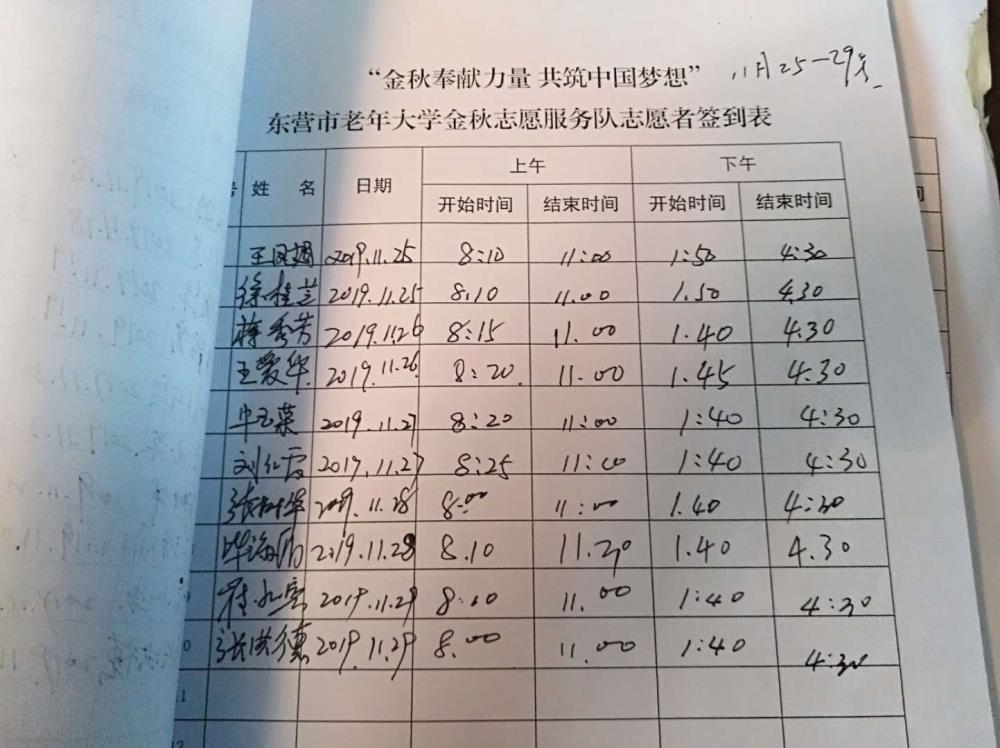 “金秋奉献力量 共筑中国梦想” 11月25-29号
东营市老年大学金秋志愿服务队志愿者签到表
姓 名 日期 上午 下午
开始时间 结束时间 开始时间 结束时间
2019.11.25 8:10 11:00 1:50 4:30
徐桂芝 2019.11.25 8.10 11.00 1.50 4.30
蒋秀芳 2019.11.26 8:15 11.00 1.40 4.30
王爱华 2019.11.26. 8:20. 11.00 1.45 4.30
2019.11.27 8:20 11:00 1:40 4:30
刘红霞 2019.11.27 8:25 11:00 1:40 4:30
张树华 2019.11.28 8:00 11:00 1.40 4:30
2019.11.28 8.10 11.20 1.40 4.30
崔永亮 2019.11.29 8:00 11.00 1:40 4:30
张洪德 2019.11.29 8.00 11.00 1:40 4:30